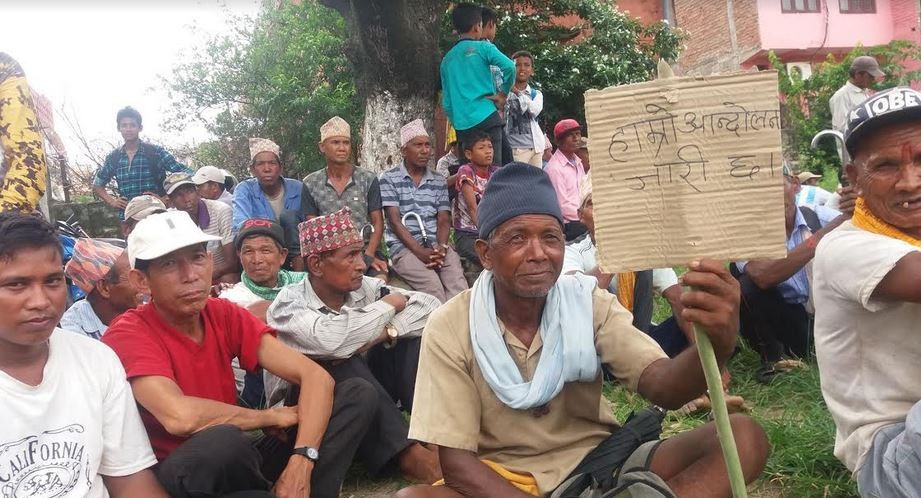 हाम्रो आन्दोलन
जारी छ।
CALIFORNIA